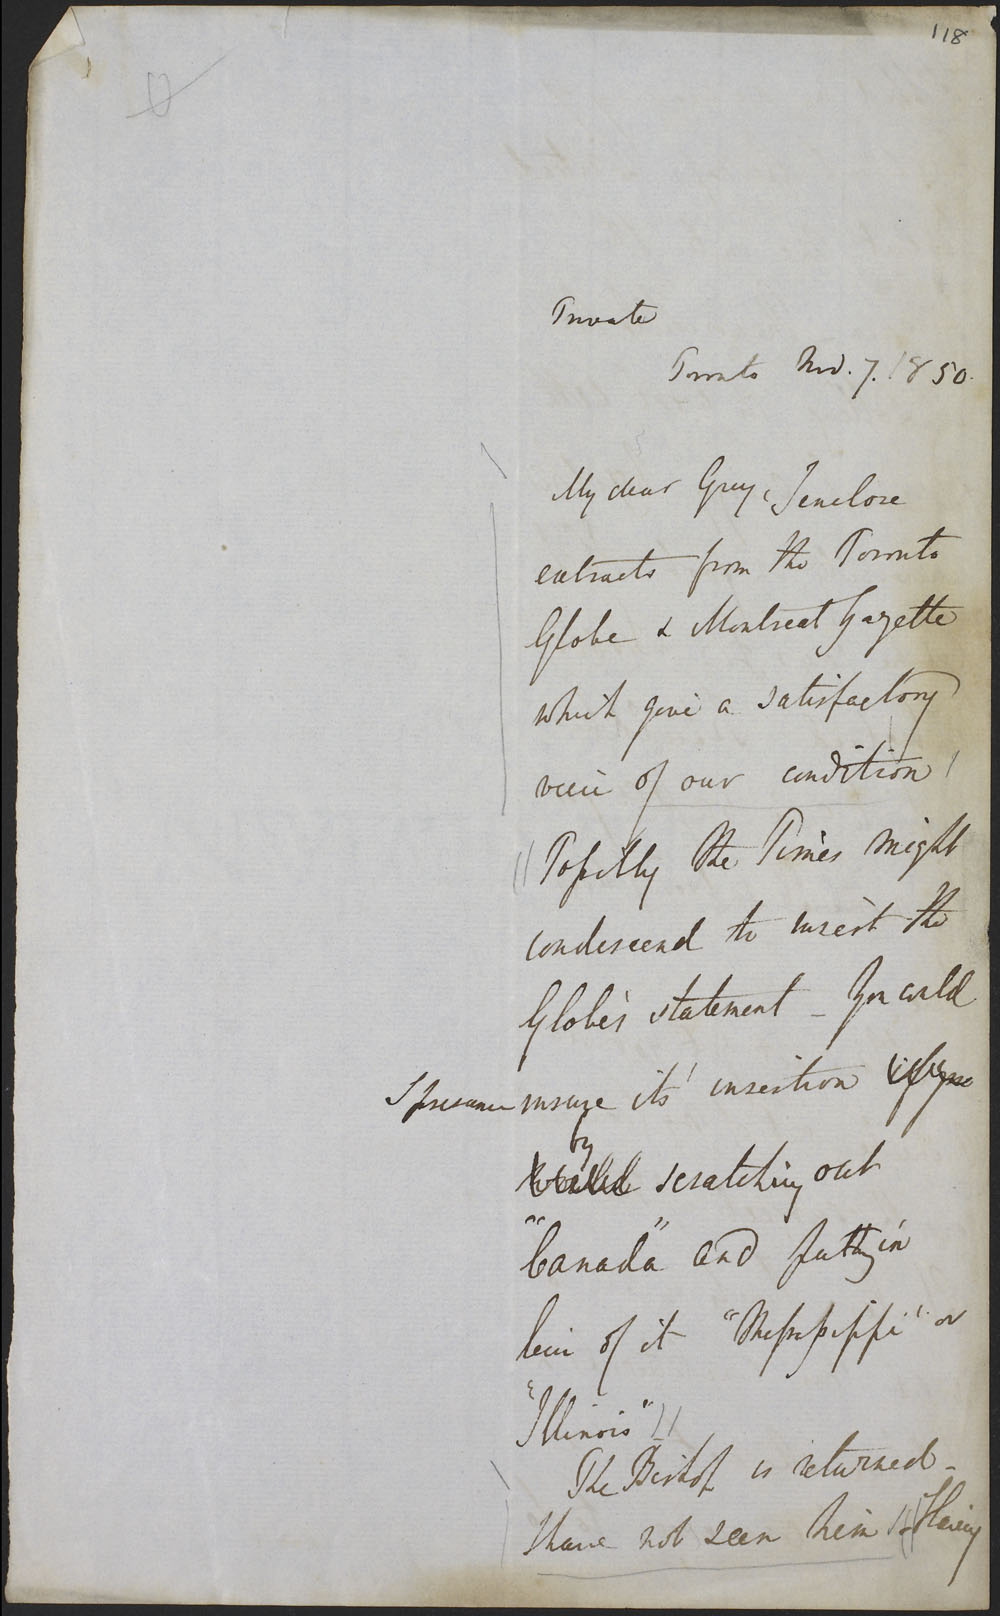 118
Private
Toronto Nov. 7. 1850.
My dear Grey, I enclose
extracts from the Toronto
Globe & Montreal Gazette
which give a satisfactory
view of our condition
Possibly the Times might
condescend to insert the
Globe's statement _ You could
I presume insure its insertion
by
scratching out
"Canada" and putting in
lieu of it "Mississippi" or
"Illinois"
The Bishop is returned _
I have not seen him _ Having